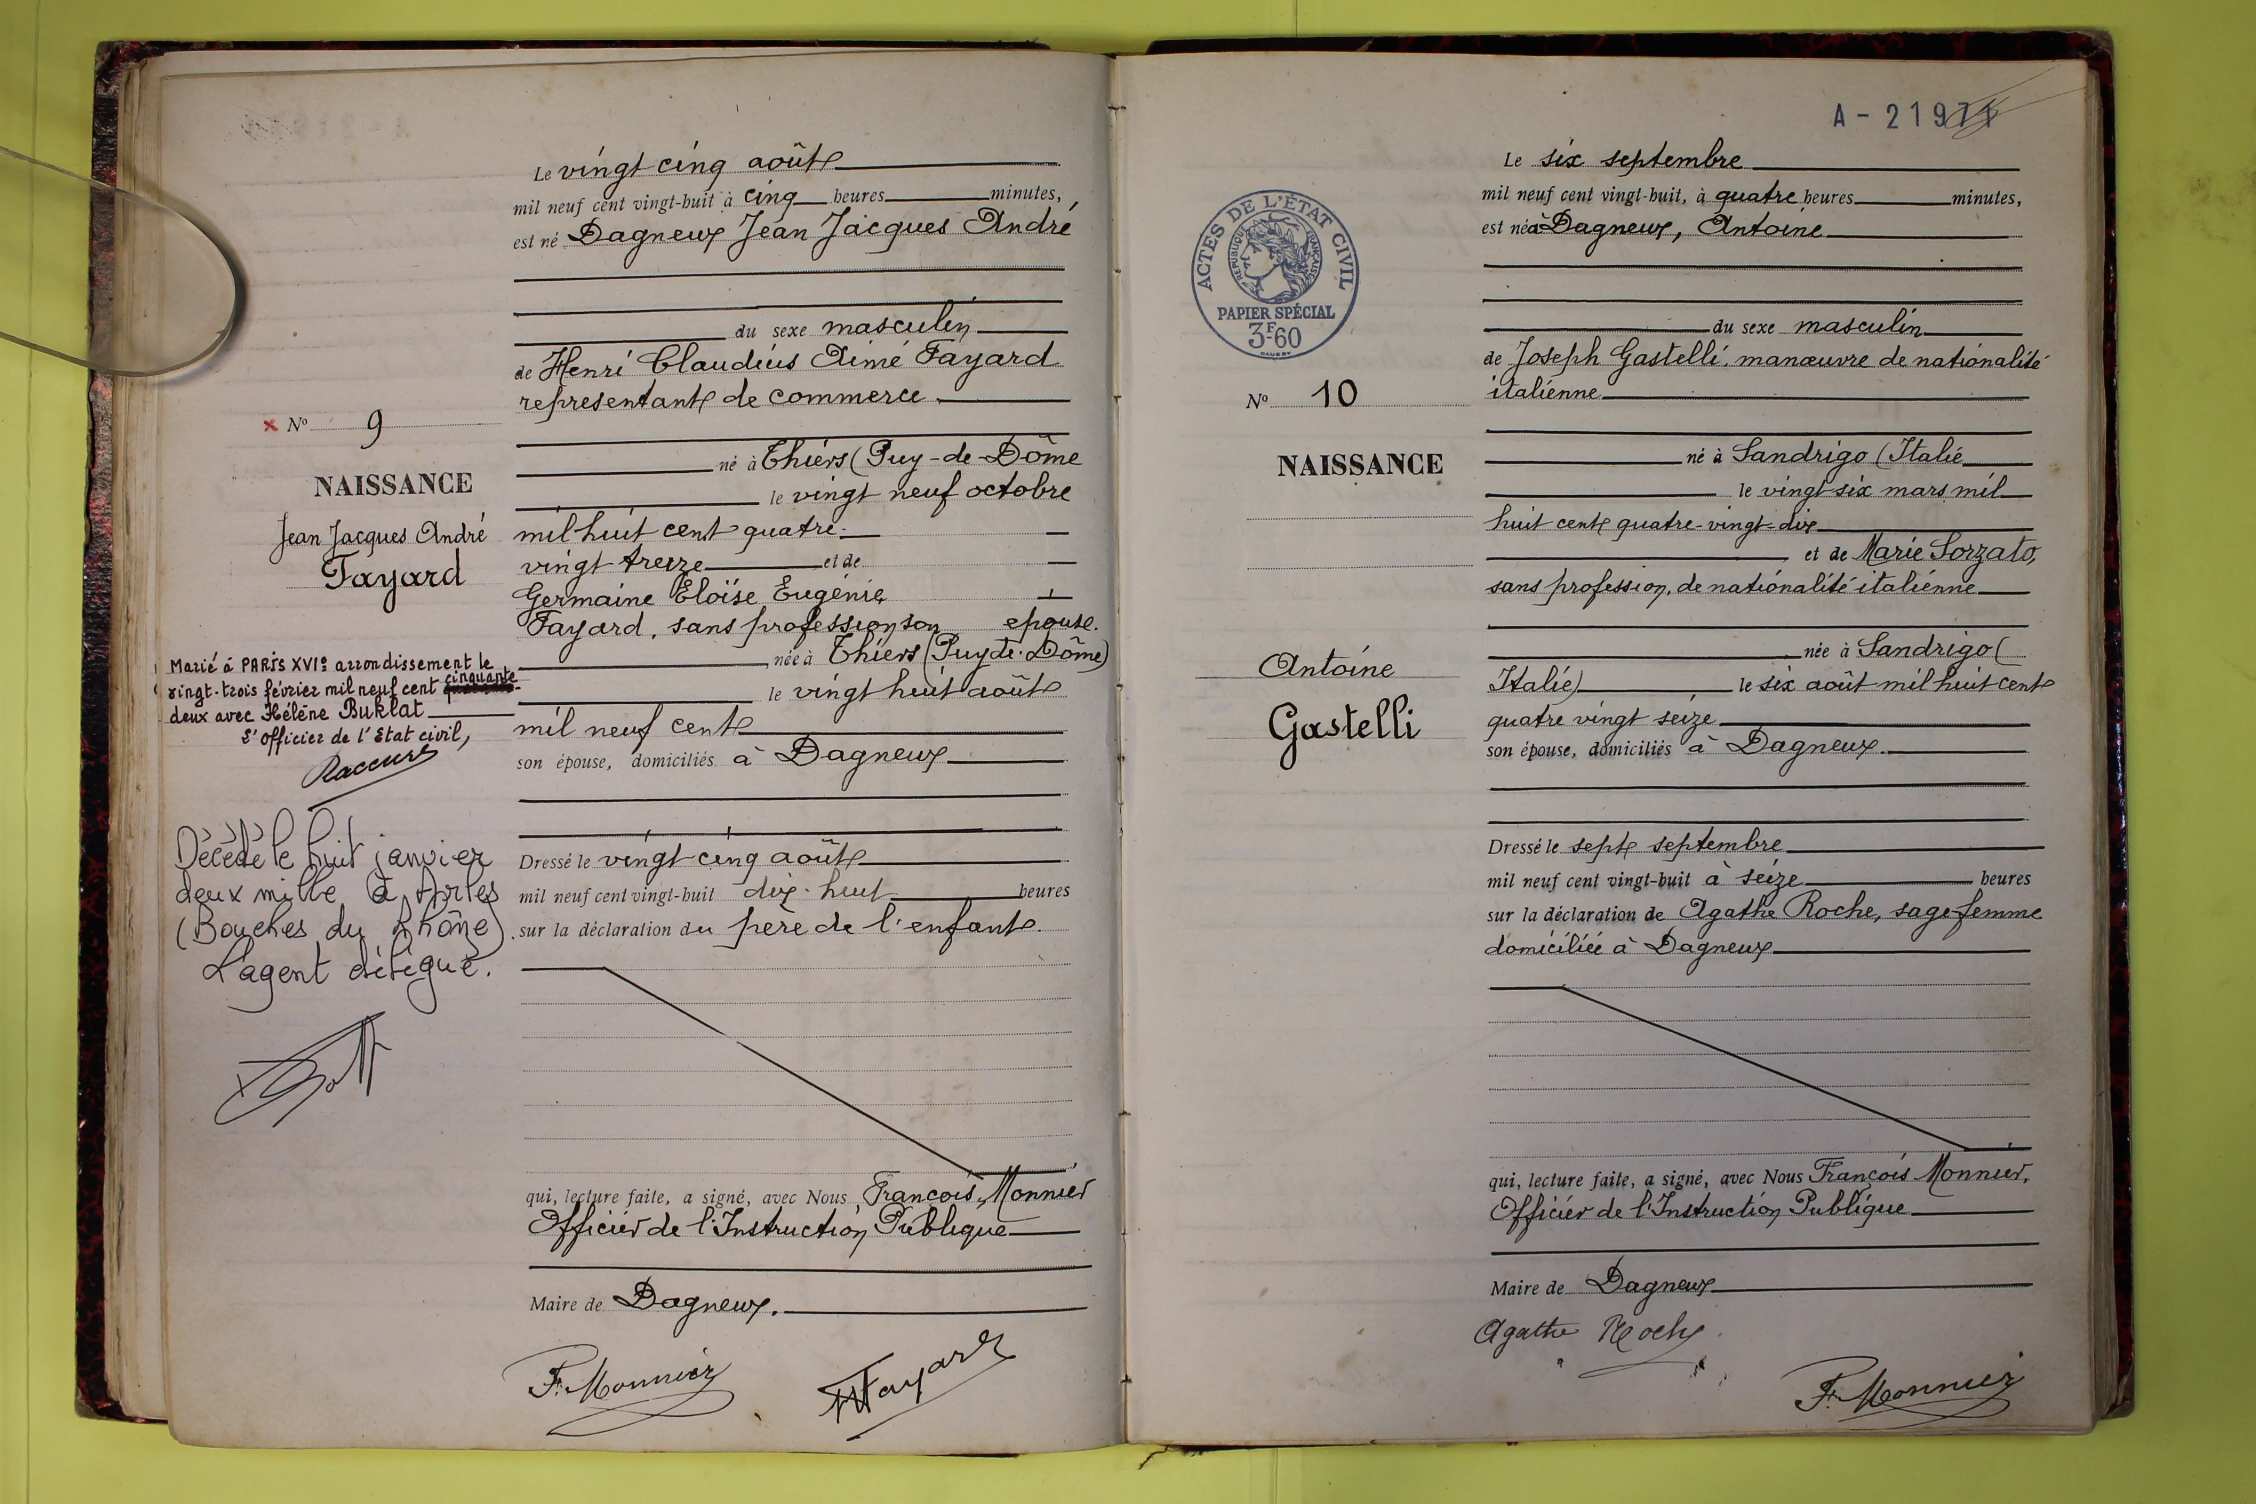 Le vingt cinq août
mil neuf cent vingt-huit à cinq heures minutes,
est né Dagneux Jean Jacques André
du sexe masculin
de Henri Claudius Aimé Fayard
representant de commerce.
× Nº 9
né à Thiers (Puy-de-Dôme
NAISSANCE
le vingt neuf octobre
Jean Jacques André
mil huit cent quatre-
Fayard
vingt treize et de
Germaine Eloïse Eugénie
Fayard, sans profession son epouse.
née à Thiers (Puy de Dôme)
le vingt huit août
mil neuf cent
son épouse, domiciliés à Dagneux
Marié à PARIS XVIe arrondissement le
vingt-trois février mil neuf cent cinquante
deux avec Hélène Buklat
L'officier de l'Etat civil,
Décédé le huit janvier
deux mille à Arles
(Bouches du Rhône)
L'agent délégué.
Dressé le vingt-cinq août
mil neuf cent vingt-huit dix-huit heures
sur la déclaration du père de l'enfant.
qui, lecture faite, a signé, avec Nous François Monnier
Officier de l'Instruction Publique
Maire de Dagneux.
F. Monnier
HFayard
A - 21971
ACTES DE L'ÉTAT CIVIL
RÉPUBLIQUE FRANÇAISE
PAPIER SPÉCIAL
3F-60
Le six septembre
mil neuf cent vingt-huit, à quatre heures minutes,
est né à Dagneux, Antoine
du sexe masculin
de Joseph Gastelli, manœuvre de nationalité
italienne
Nº 10
né à Sandrigo (Italie
NAISSANCE
le vingt six mars mil
huit cent quatre-vingt-dix
et de Marie Sorzato,
sans profession, de nationalité italienne
née à Sandrigo (
Antoine
Italie) le six août mil huit cent
Gastelli
quatre vingt seize
son épouse, domiciliés à Dagneux.
Dressé le sept septembre
mil neuf cent vingt-huit à seize heures
sur la déclaration de Agathe Roche, sage femme
domiciliée à Dagneux
qui, lecture faite, a signé, avec Nous François Monnier,
Officier de l'Instruction Publique
Maire de Dagneux
Agathe Roche
F. Monnier